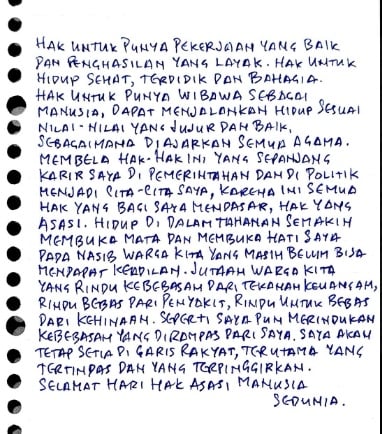 HAK UNTUK PUNYA PEKERJAAN YANG BAIK
DAN PENGHASILAN YANG LAYAK. HAK UNTUK
HIDUP SEHAT, TERDIDIK DAN BAHAGIA.
HAK UNTUK PUNYA WIBAWA SEBAGAI
MANUSIA, DAPAT MENJALANKAN HIDUP SESUAI
NILAI-NILAI YANG JUJUR DAN BAIK,
SEBAGAIMANA DIAJARKAN SEMUA AGAMA.
MEMBELA HAK-HAK INI YANG SEPANJANG
KARIR SAYA DI PEMERINTAHAN DAN DI POLITIK
MENJADI CITA-CITA SAYA, KARENA INI SEMUA
HAK YANG BAGI SAYA MENDASAR, HAK YANG
ASASI. HIDUP DI DALAM TAHANAN SEMAKIN
MEMBUKA MATA DAN MEMBUKA HATI SAYA
PADA NASIB WARGA KITA YANG MASIH BELUM BISA
MENDAPAT KEADILAN. JUTAAN WARGA KITA
YANG RINDU KEBEBASAN DARI TEKANAN KEUANGAN,
RINDU BEBAS DARI PENYAKIT, RINDU UNTUK BEBAS
DARI KEHINAAN. SEPERTI SAYA PUN MERINDUKAN
KEBEBASAN YANG DIRAMPAS DARI SAYA. SAYA AKAN
TETAP SETIA DI GARIS RAKYAT, TERUTAMA YANG
TERTINDAS DAN YANG TERPINGGIRKAN.
SELAMAT HARI HAK ASASI MANUSIA
SEDUNIA.